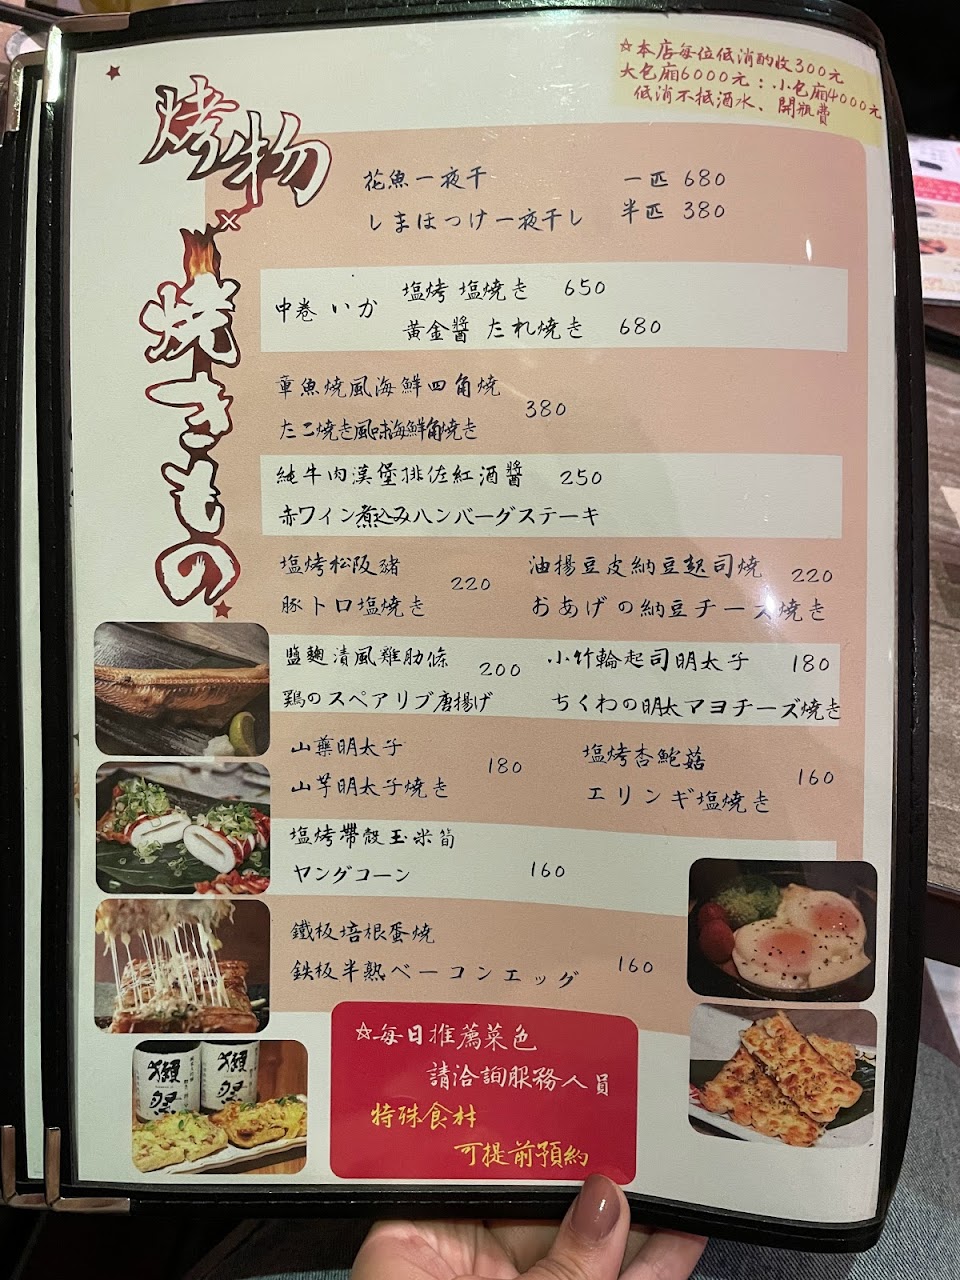 ☆本店每位低消酌收300元
大包廂6000元；小包廂4000元
低消不抵酒水、開瓶費
烤物
×
焼きもの
花魚一夜干 一匹 680
しまほっけ一夜干し 半匹 380
中卷 いか
塩烤 塩焼き 650
黃金醬 たれ焼き 680
章魚燒風海鮮四角燒
380
たこ焼き風味海鮮角焼き
純牛肉漢堡排佐紅酒醬 250
赤ワイン煮込みハンバーグステーキ
塩烤松阪豬 220
豚トロ塩焼き
油揚豆皮納豆起司燒 220
おあげの納豆チーズ焼き
鹽麴漬風雞肋條 200
鶏のスペアリブ唐揚げ
小竹輪起司明太子 180
ちくわの明太マヨチーズ焼き
山藥明太子 180
山芋明太子焼き
塩烤杏鮑菇 160
エリンギ塩焼き
塩烤帶殼玉米筍
ヤングコーン 160
鐵板培根蛋燒
鉄板半熟ベーコンエッグ 160
☆每日推薦菜色
請洽詢服務人員
特殊食材
可提前預約
獺祭
獺祭